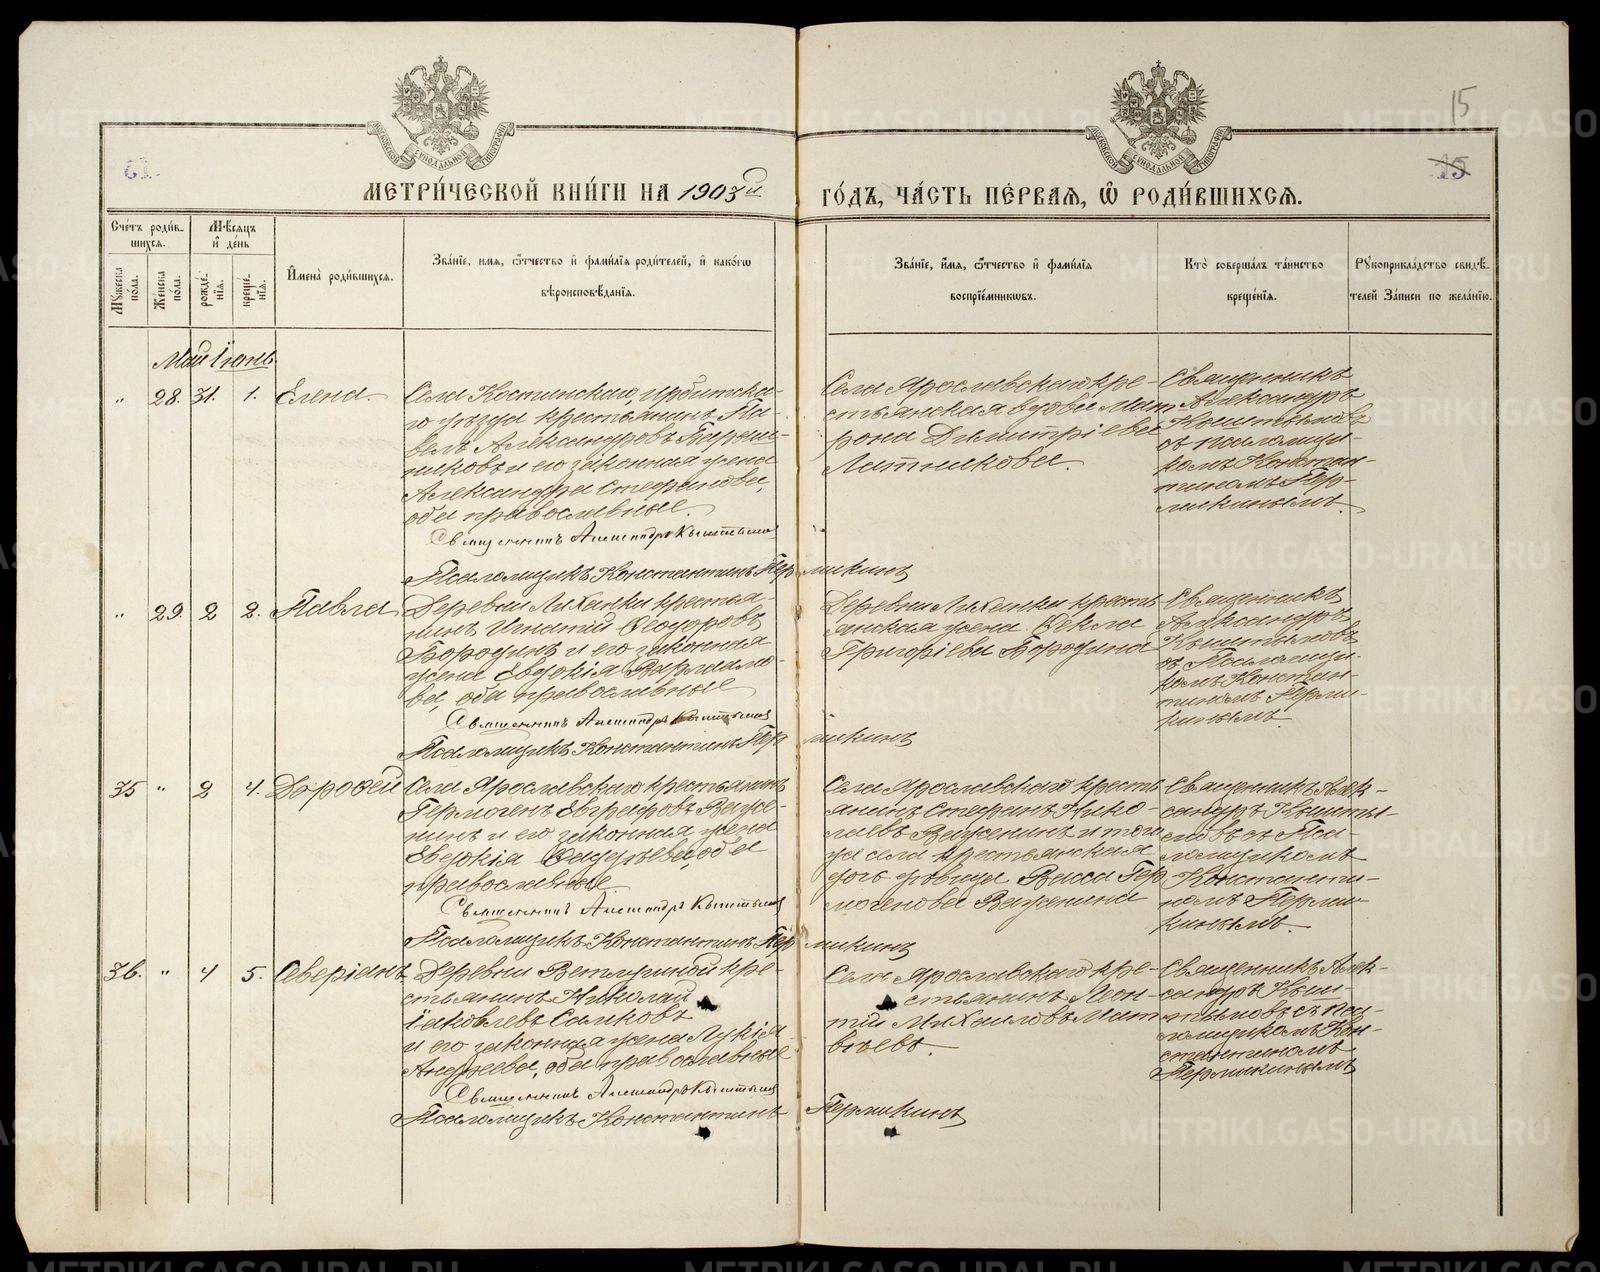 15
15
МЕТРИ́ЧЕСКОЙ КНИ́ГИ НА 1903й ГО́ДЪ, ЧА́СТЬ ПЕ́РВАЯ, Ѡ РОДИ́ВШИХСЯ.
Сче́тъ роди́в-
шихся.
Мꙋжеска по́ла.
Же́нска по́ла.
Мѣ́сяцъ
и҆ де́нь
рожде́-
нїя.
креще́-
нїя.
И҆мена̀ роди́вшихся.
Зва́нїе, имя, ѻ҆́тчество и҆ фами́лїя роди́телей, и҆ како́гѡ
вѣроисповѣ́данїя.
Зва́нїе, и҆́мя, ѻ҆́тчество и҆ фами́лїя
воспрїе́мникѡвъ.
Кто̀ соверша́лъ та́инство
креще́нїя.
Рꙋкоприкла́дство свидѣ́-
телей За́писи по жела́нїю.
Май Іюнь
„ 28. 31. 1. Елена.
Села Костинскаго, Ирбитска-
го уѣзда крестьянинъ Па-
велъ Александровъ
и его законная жена
Александра Стефанова,
оба православные.
Священникъ Александръ Кыштымовъ
Псаломщикъ Константинъ Пермикинъ
Села Ярославскаго кре-
стьянская вдова Мат
рона Димитріева
Латникова.
Священникъ
Александръ
Кыштымовъ
съ псаломщи-
комъ Констан-
тиномъ Пер-
микинымъ.
„ 29. 2 2. Павла
Деревни Ляхинки крестья-
нинъ Игнатій Ѳеодоровъ
Бородинъ и его законная
жена Евдокія Варлаамо-
ва, оба православные
Священникъ Александръ Кыштымовъ
Псаломщикъ Константинъ Пермикинъ
Деревни Ляхинки кресть
янская жена Ѳекла
Григоріева Бородина
Священникъ
Александръ
Кыштымовъ
съ Псаломщи-
комъ Констан-
тиномъ Перми-
кинымъ.
35 „ 2 4. Дороѳей
Села Ярославскаго крестьянинъ
Гермогенъ Евграфовъ Важе-
нинъ и его законная жена
Евдокія Ѳаддѣева, оба
православные.
Священникъ Александръ Кыштымовъ
Псаломщикъ Константинъ Пермикинъ
Села Ярославскаго кресть
янинъ Стефанъ Нико-
лаевъ Важенинъ и того
же села крестьянская
дочь дѣвица Васса Гер
могенова Важенина
Священникъ Алек-
сандръ Кышты-
мовъ съ Пса-
ломщикомъ
Константи-
номъ Перми-
кинымъ.
36. „ 4 5. Аверіанъ
Деревни Ветлугиной кре-
стьянинъ Николай
Іаковлевъ Салковъ
и его законная жена Лукія
Андреева, оба православные
Священникъ Александръ Кыштымовъ
Псаломщикъ Константинъ Пермикинъ
Села Ярославскаго кре-
стьянинъ Леон-
тій Михаиловъ Мат
вѣевъ.
Священникъ Алек-
сандръ Кыш-
тымовъ съ Пса-
ломщикомъ Кон-
стантиномъ
Пермикинымъ
METRIKI.GASO-URAL.RU